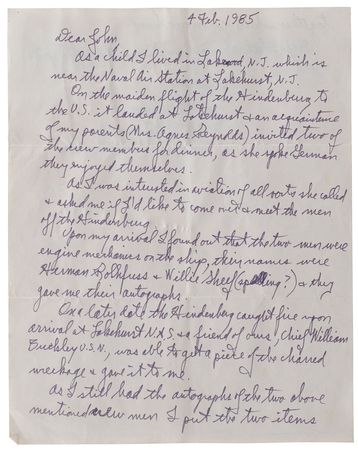 4 Feb. 1985
Dear John,
As a child I lived in Lakewood, N.J. which is
near the Naval Air Station at Lakehurst, N.J.
On the maiden flight of the Hindenburg to
the U.S. it landed at Lakehurst & an acquaintence
of my parents (Mrs. Agnes Reynolds) invited two of
the crew members for dinner, as she spoke German
they enjoyed themselves.
As I was interested in aviation of all sorts she called
& asked me if I'd like to come out & meet the men
off the Hindenburg.
Upon my arrival I found out that the two men were
engine mechanics on the ship, their names were
Herman Rothfuss & Willie Sheef (spelling?) & they
gave me their autographs.
On a later date the Hindenberg caught fire upon
arrival at Lakehurst N.A.S. & a friend of ours, Chief William
Buckley U.S.N., was able to get a piece of the charred
wreckage & gave it to me.
As I still had the autographs of the two above
mentioned crew men I put the two items